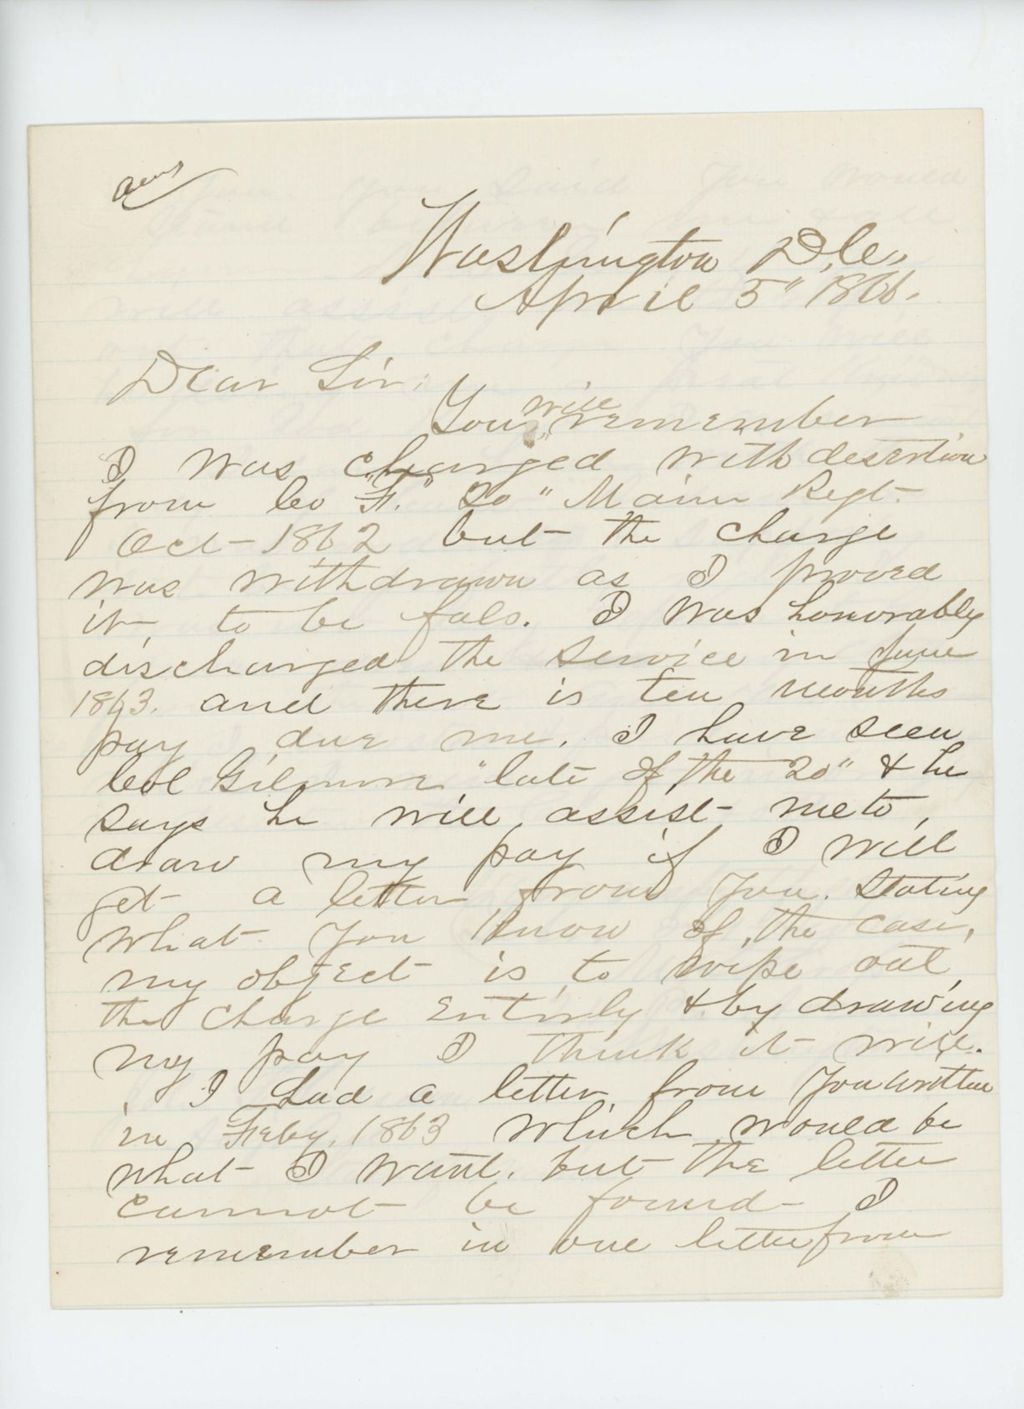 ans
Washington D.C.,
April 5" 1866.
Dear Sir:
You will remember
I was charged with desertion
from Co "F." 20" Maine Regt.
Oct 1862 but the charge
was withdrawn as I prooved
it to be fals. I was honorably
discharged the service in June
1863. and there is ten months
pay due me. I have seen
Col Gilmore "late of the 20" & he
says he will assist me to
draw my pay if I will
get a letter from you. stating
what you know of the case,
my object is to wipe out
the charge entirly & by drawing
my pay I think it will.
I had a letter from you written
in Feby, 1863 which would be
what I want. but the letter
cannot be found I
remember in one letter from